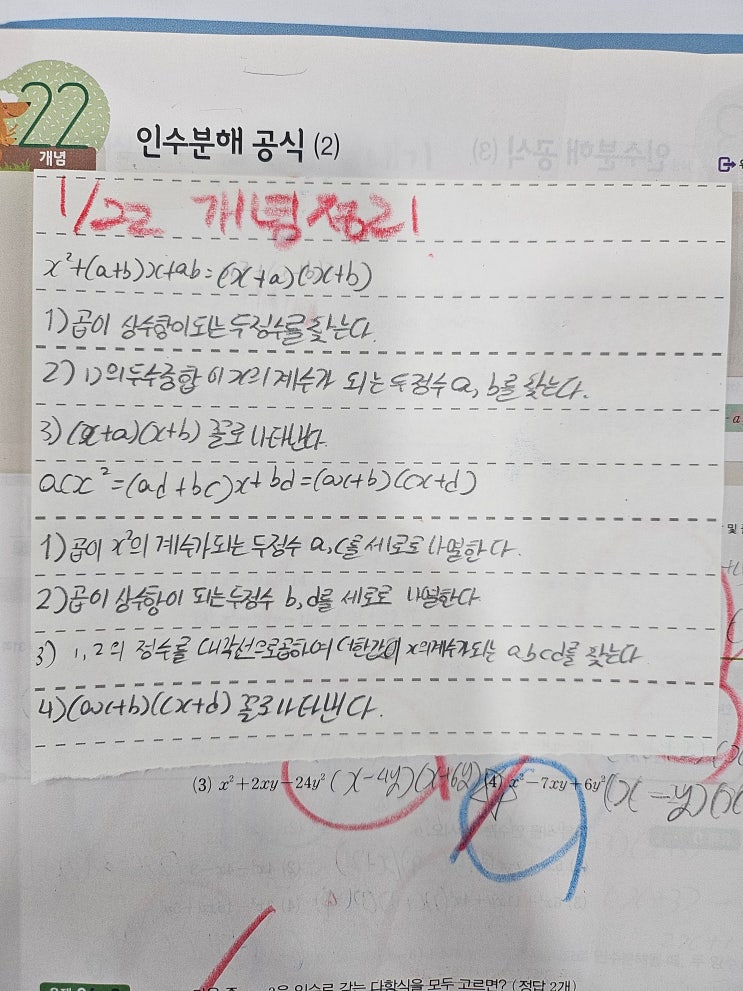 22
개념
인수분해 공식 (2)
1/22 개념정리
x²+(a+b)x+ab=(x+a)(x+b)
1) 곱이 상수항이 되는 두정수를 찾는다.
2) 1)의 두수중합이 x의 계수가 되는 두정수 a, b를 찾는다.
3) (x+a)(x+b) 꼴로 나타낸다.
acx²=(ad+bc)x+bd=(ax+b)(cx+d)
1) 곱이 x²의 계수가 되는 두정수 a, c를 세로로 나열한다.
2) 곱이 상수항이 되는 두정수 b, d를 세로로 나열한다.
3) 1, 2의 정수를 대각선으로 곱하여 더한값이 x의계수가되는 a b c d를 찾는다
4) (ax+b)(cx+d) 꼴로 나타낸다.
(3) x²+2xy-24y² (x-4y)(x+6y) (4) x²-7xy+6y² (x-y)(x
은 인수로 갖는 다항식을 모두 고르면? (정답 2개)